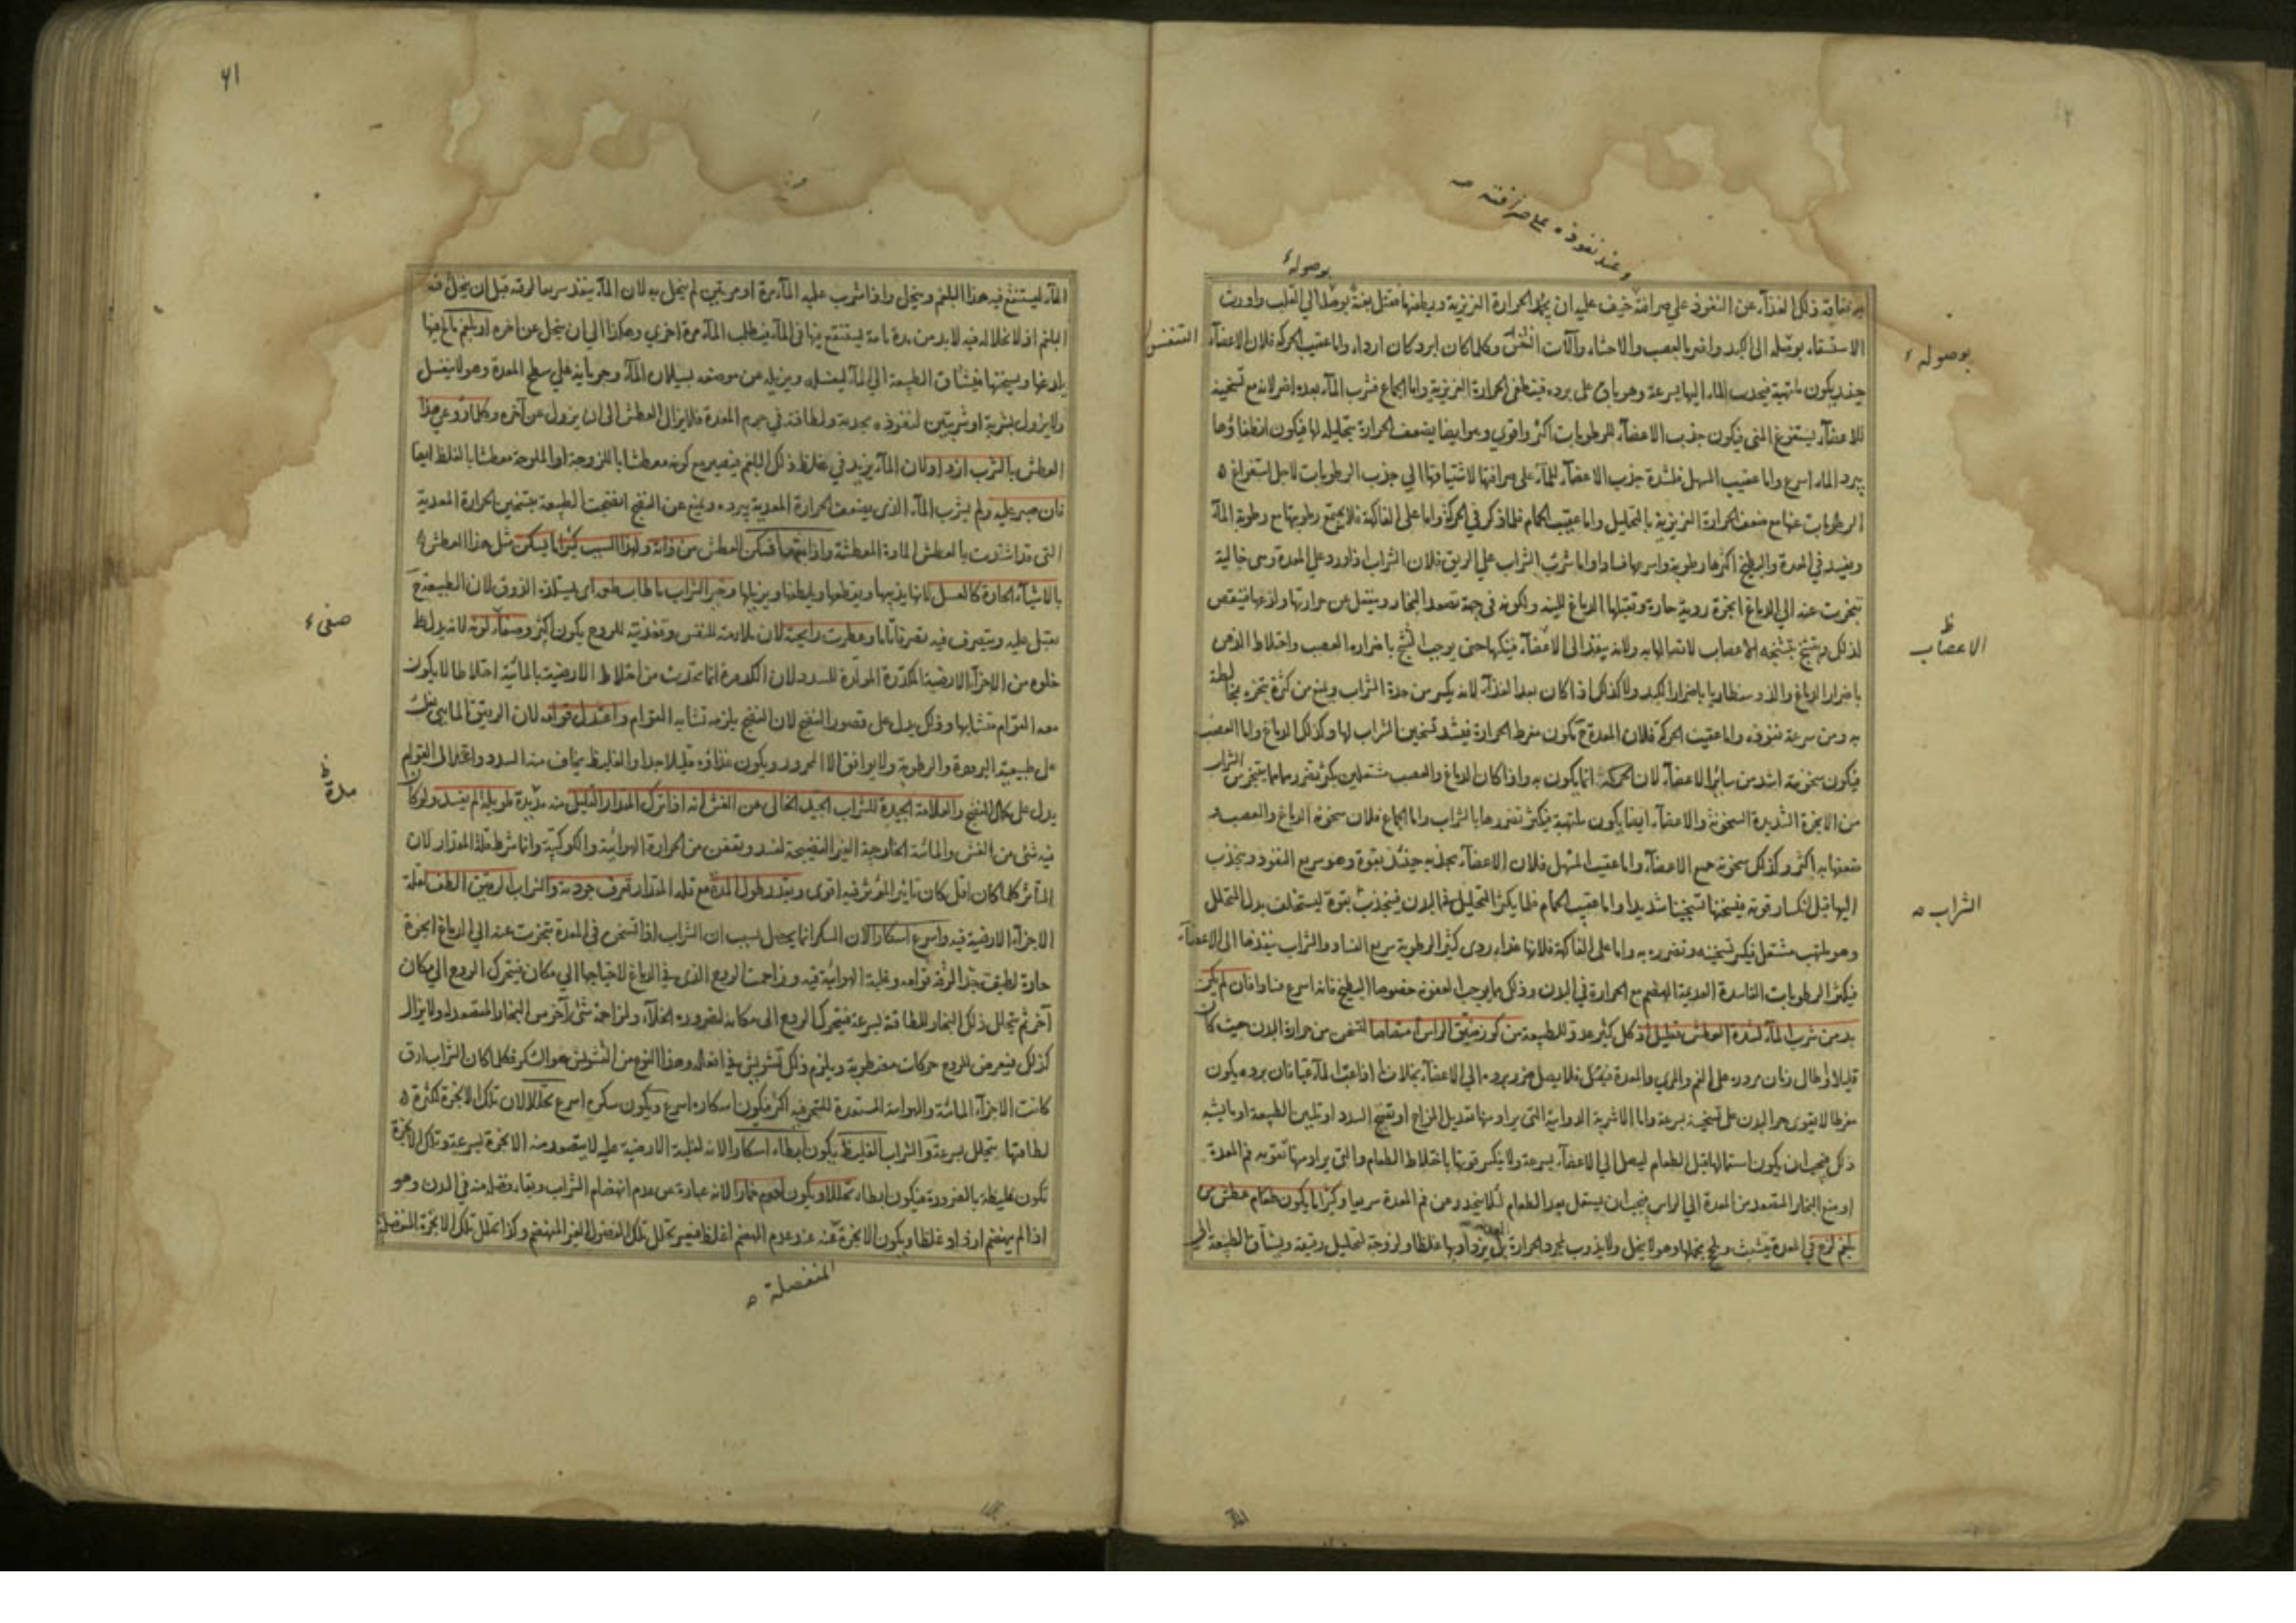 وعند نفوذه على صرافته صـ
بوصوله
ذلك الغذاء عن النفوذ على صرافته خيف عليه ان يخمد الحرارة الغريزية وربما قتل بغتة بوصوله الى القلب واورث
الاستسقاء بوصوله الى الكبد واضر بالعصب والاحشاء وآلات التنفس وكلما كان ابرد كان اردأ واما عقيب الحركة فلان الاعضاء
التنفس
بوصوله
حينئذ يكون ملتهبة فيجذب الماء اليها بسرعة وهو باق على برده فينطفى الحرارة الغريزية واما الجماع فشرب الماء بعده اضر لانه مع تسخينه
للاعضاء يستفرغ المنى فيكون جذب الاعضاء للرطوبات اكثر واقوى وهو ايضا يضعف الحرارة بتحليله لها فيكون انطفاؤها
ببرد الماء اسرع واما عقيب المسهل فلشدة جذب الاعضاء للماء على صرافتها لاشتياقها الى جذب الرطوبات لاجل استفراغ
الرطوبات عنها مع ضعف الحرارة الغريزية بالتحليل واما عقيب الحمام فلما ذكر في الحركة واما على الفاكهة فلانه يجتمع رطوبتها مع رطوبة الماء
ويفسد في المعدة والبطيخ اكثرها رطوبة واسرعها فسادا واما شرب الشراب على الريق فلان الشراب اذا ورد على المعدة وهى خالية
تبخرت عنه الى الدماغ ابخرة ردية حارة وتقبلها الدماغ للينه ولكونه في جهة تصعد البخار وينفعل عن حرارتها ولذعها فينقبض
لذلك ويتشنج بتشنجه الاعصاب لاتصالها به ولانه ينفذ الى الاعضاء فينكيها حتى يوجب التشنج باضراره العصب واختلاط الذهن
الاعصاب ظ
باضرار الدماغ والذوسنطاريا باضرار الكبد ولا كذلك اذا كان بعد الغذاء لانه يكسر من حدة الشراب ويمنع من كثرة تبخره بمخالطة
به ومن سرعة نفوذه واما عقيب الحركة فلان المعدة ح تكون مفرط الحرارة فيشتد تسخين الشراب لها وكذلك الدماغ واما العصب
فيكون سخونته اشد من سائر الاعضاء لان الحركة انما يكون به واذا كان الدماغ والعصب مشتعلين يكثر تضررهما بما يتبخر من الشراب
من الابخرة الشديدة السخونة والاعضاء ايضا يكون ملتهبة فيكثر تضررها بالشراب واما الجماع فلان سخونة الدماغ والعصب و
ضعفها به اكثر وكذلك سخونة جميع الاعضاء واما عقيب المسهل فلان الاعضاء يجذبه حينئذ بقوة وهو سريع النفوذ وينجذب
الشراب صـ
اليها قبل انكسار قوته فيسخنها تسخينا شديدا واما عقيب الحمام فلما يكثر التحليل في البدن فيجذب بقوة ليستخلف بدل المتحلل
وهو ملتهب مشتعل فيكثر تسخينه وتضرره به واما على الفاكهة فلانها غذاء ردى كثير الرطوبة سريع الفساد والشراب ينفذها الى الاعضاء
فيكثر الرطوبات الفاسدة العديمة الهضم مع الحرارة في البدن وذلك مما يوجب العفونة خصوصا البطيخ فانه اسرع فسادا فان لم يكن
بد من شرب الماء لشدة العطش فقليل اذ كل كثير عدو للطبيعة من كوز ضيق الراس امتصاصا لتسخن من حرارة البدن حيث كان
قليلا وطال زمان مروره على الفم والمرى والمعدة فلا يصل ضرر برده الى الاعضاء بخلاف ما اذا عب الماء عبا فان برده يكون
مفرطا لا يقوى حر البدن على تسخينه بسرعة واما الاشربة الدوائية التى يراد منها تعديل المزاج او تفتيح السدد او تليين الطبيعة او ما يشبه
ذلك فيجب ان يكون استعمالها قبل الطعام ليصل الى الاعضاء بسرعة ولا ينكسر قوتها باختلاط الطعام والتى يراد منها تقوية فم المعدة
او منع البخار المتصعد من المعدة الى الراس فيجب ان يستعمل بعد الطعام لئلا ينحدر عن فم المعدة سريعا وكثيرا ما يكون طعام عطش من
بلغم لزج في المعدة يتشبث ويلحج بخملها وهو لا ينحل ولا يذوب بمجرد الحرارة بل يزداد بها غلظا ولزوجة لتحليل رقيقه ويشتاق الطبيعة الى
الماء
٤١
الماء ليستنقع فيه هذا البلغم وينحل واذا شرب عليه الماء مرة او مرتين لم ينحل به لان الماء ينفذ سريعا لرقته قبل ان ينحل فيه
البلغم اذ لا نحلاله فيه لابد من مدة تامة ليستنقع فيها في الماء فيطلب الماء مرة اخرى وهكذا الى ان ينحل عن اخره او بلغم مالح فيها
يلذعها ويسخنها فيشتاق الطبيعة الى الماء ليغسله ويزيله عن موضعه بسيلان الماء وجريانه على سطح المعدة وهو لا ينغسل
ولا يزول بشربة او شربتين لنفوذه بحدته ولطافته في جرم المعدة فلا يزال العطش الى ان يزول عن آخره وكلما روعى هذا
العطش بالشرب ازداد لان الماء يزيد في غلظ ذلك البلغم فيصير مع كونه معطشا باللزوجة او الملوحة معطشا بالغلظ ايضا
فان صبر عليه ولم يشرب الماء الذى يضعف الحرارة المعدية ببرده ويمنع عن النضج انضجت الطبيعة بتسخين الحرارة المعدية
التى قد اشتدت بالعطش المادة المعطشة واذابتها فسكن العطش من ذاته ولهذا السبب كثيرا ما يسكن مثل هذا العطش
بالاشياء الحارة كالعسل لانها يذيبها ويقطعها ويلطفها ويزيلها وخير الشراب ما طاب طعمه اى يستلذه الذوق لان الطبيعة ح
تقبل عليه ويتصرف فيه تصرفا تاما وعطرت رايحته لان ملايمته للنفس وتغذيته للروح يكون اكثر وصفا لونه لانه يدل على
صفى
خلوه من الاجزاء الارضية المكدرة المولدة للسدد لان الكدورة انما تحدث من اختلاط الارضية بالمائية اختلاطا لا يكون
معه القوام متشابها وذلك يدل على قصور النضج لان النضج يلزمه تشابه القوام واعتدل قوامه لان الرقيق المائى
على طبيعته البرودة والرطوبة ولا يوافق الا المحرور ويكون غذاؤه قليلا جدا والغليظ يخاف منه السدد واعتدال القوام
يدل على كمال النضج والعلامة الجيدة للشراب الجيد الخالى عن الغش انه اذا ترك المقدار القليل منه مديدة طويلة لم يفسد ولو كان
مدة ظ
فيه شئ من الغش والمائية الخارجية الغير النضيجة لفسد وتعفن من الحرارة الهوائية والكوكبية وانما شرط قلة المقدار لان
المتأثر كلما كان اقل كان تاثير المؤثر فيه اقوى وبقدر طول المدة مع قلة المقدار تعرف جودته والشراب الرقيق الطف لقلة
الاجزاء الارضية فيه واسرع اسكارا لان السكر انما يحصل بسبب ان الشراب اذا تسخن في المعدة تبخرت عنه الى الدماغ ابخرة
حارة لطيفة جدا لرقة قوامه وغلبة الهوائية فيه وزاحمت الروح الذى في الدماغ لاحتياجها الى مكان فيتحرك الروح الى مكان
آخر ثم يتحلل ذلك البخار للطافته بسرعة فيتحرك الروح الى مكانه لضرورة الخلاء ولمزاحمة شئ آخر من البخار المتصعد ولا يزال
كذلك فيعرض للروح حركات مضطربة ويلزم ذلك تشويش في افعاله وهذا النوع من التشويش هو السكر فكلما كان الشراب ارق
كانت الاجزاء المائية والهوائية المستعدة للتبخر فيه اكثر فيكون اسكاره اسرع ويكون سكره اسرع تحللا لان تلك الابخرة لكثرة
لطافتها يتحلل بسرعة والشراب الغليظ يكون ابطاء اسكارا لانه لغلبة الارضية عليه لا يتصعد منه الابخرة بسرعة وتلك الابخرة
تكون غليظة بالضرورة فيكون ابطاء تحللا ويكون ادوم خمارا لانه عبارة عن عدم انهضام الشراب وبقاء فضله منه في البدن وهو
اذا لم ينهضم ازداد غلظا ويكون الابخرة عنه عند عدم الهضم اغلظ فيعسر تحلل تلك الفضول الغير المنهضم وكذا تحلل تلك الابخرة المنفصلة
المنفصلة